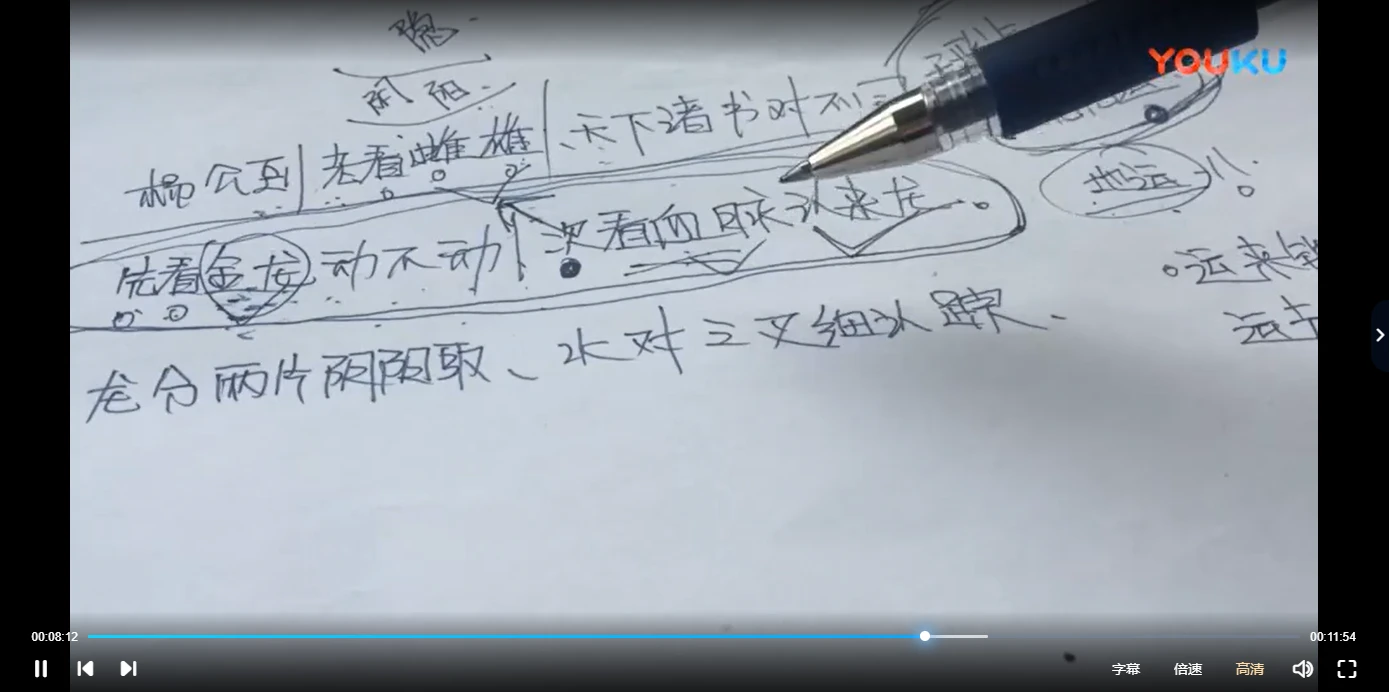 YOUKU
阴 阳
杨公至 老看雌雄 天下诸书对不同
地运!!
先看金龙动不动 次看血脉认来龙。
运来
龙分两片阴阳取、水对三叉细认踪、
00:08:12
00:11:54
字幕 倍速 高清